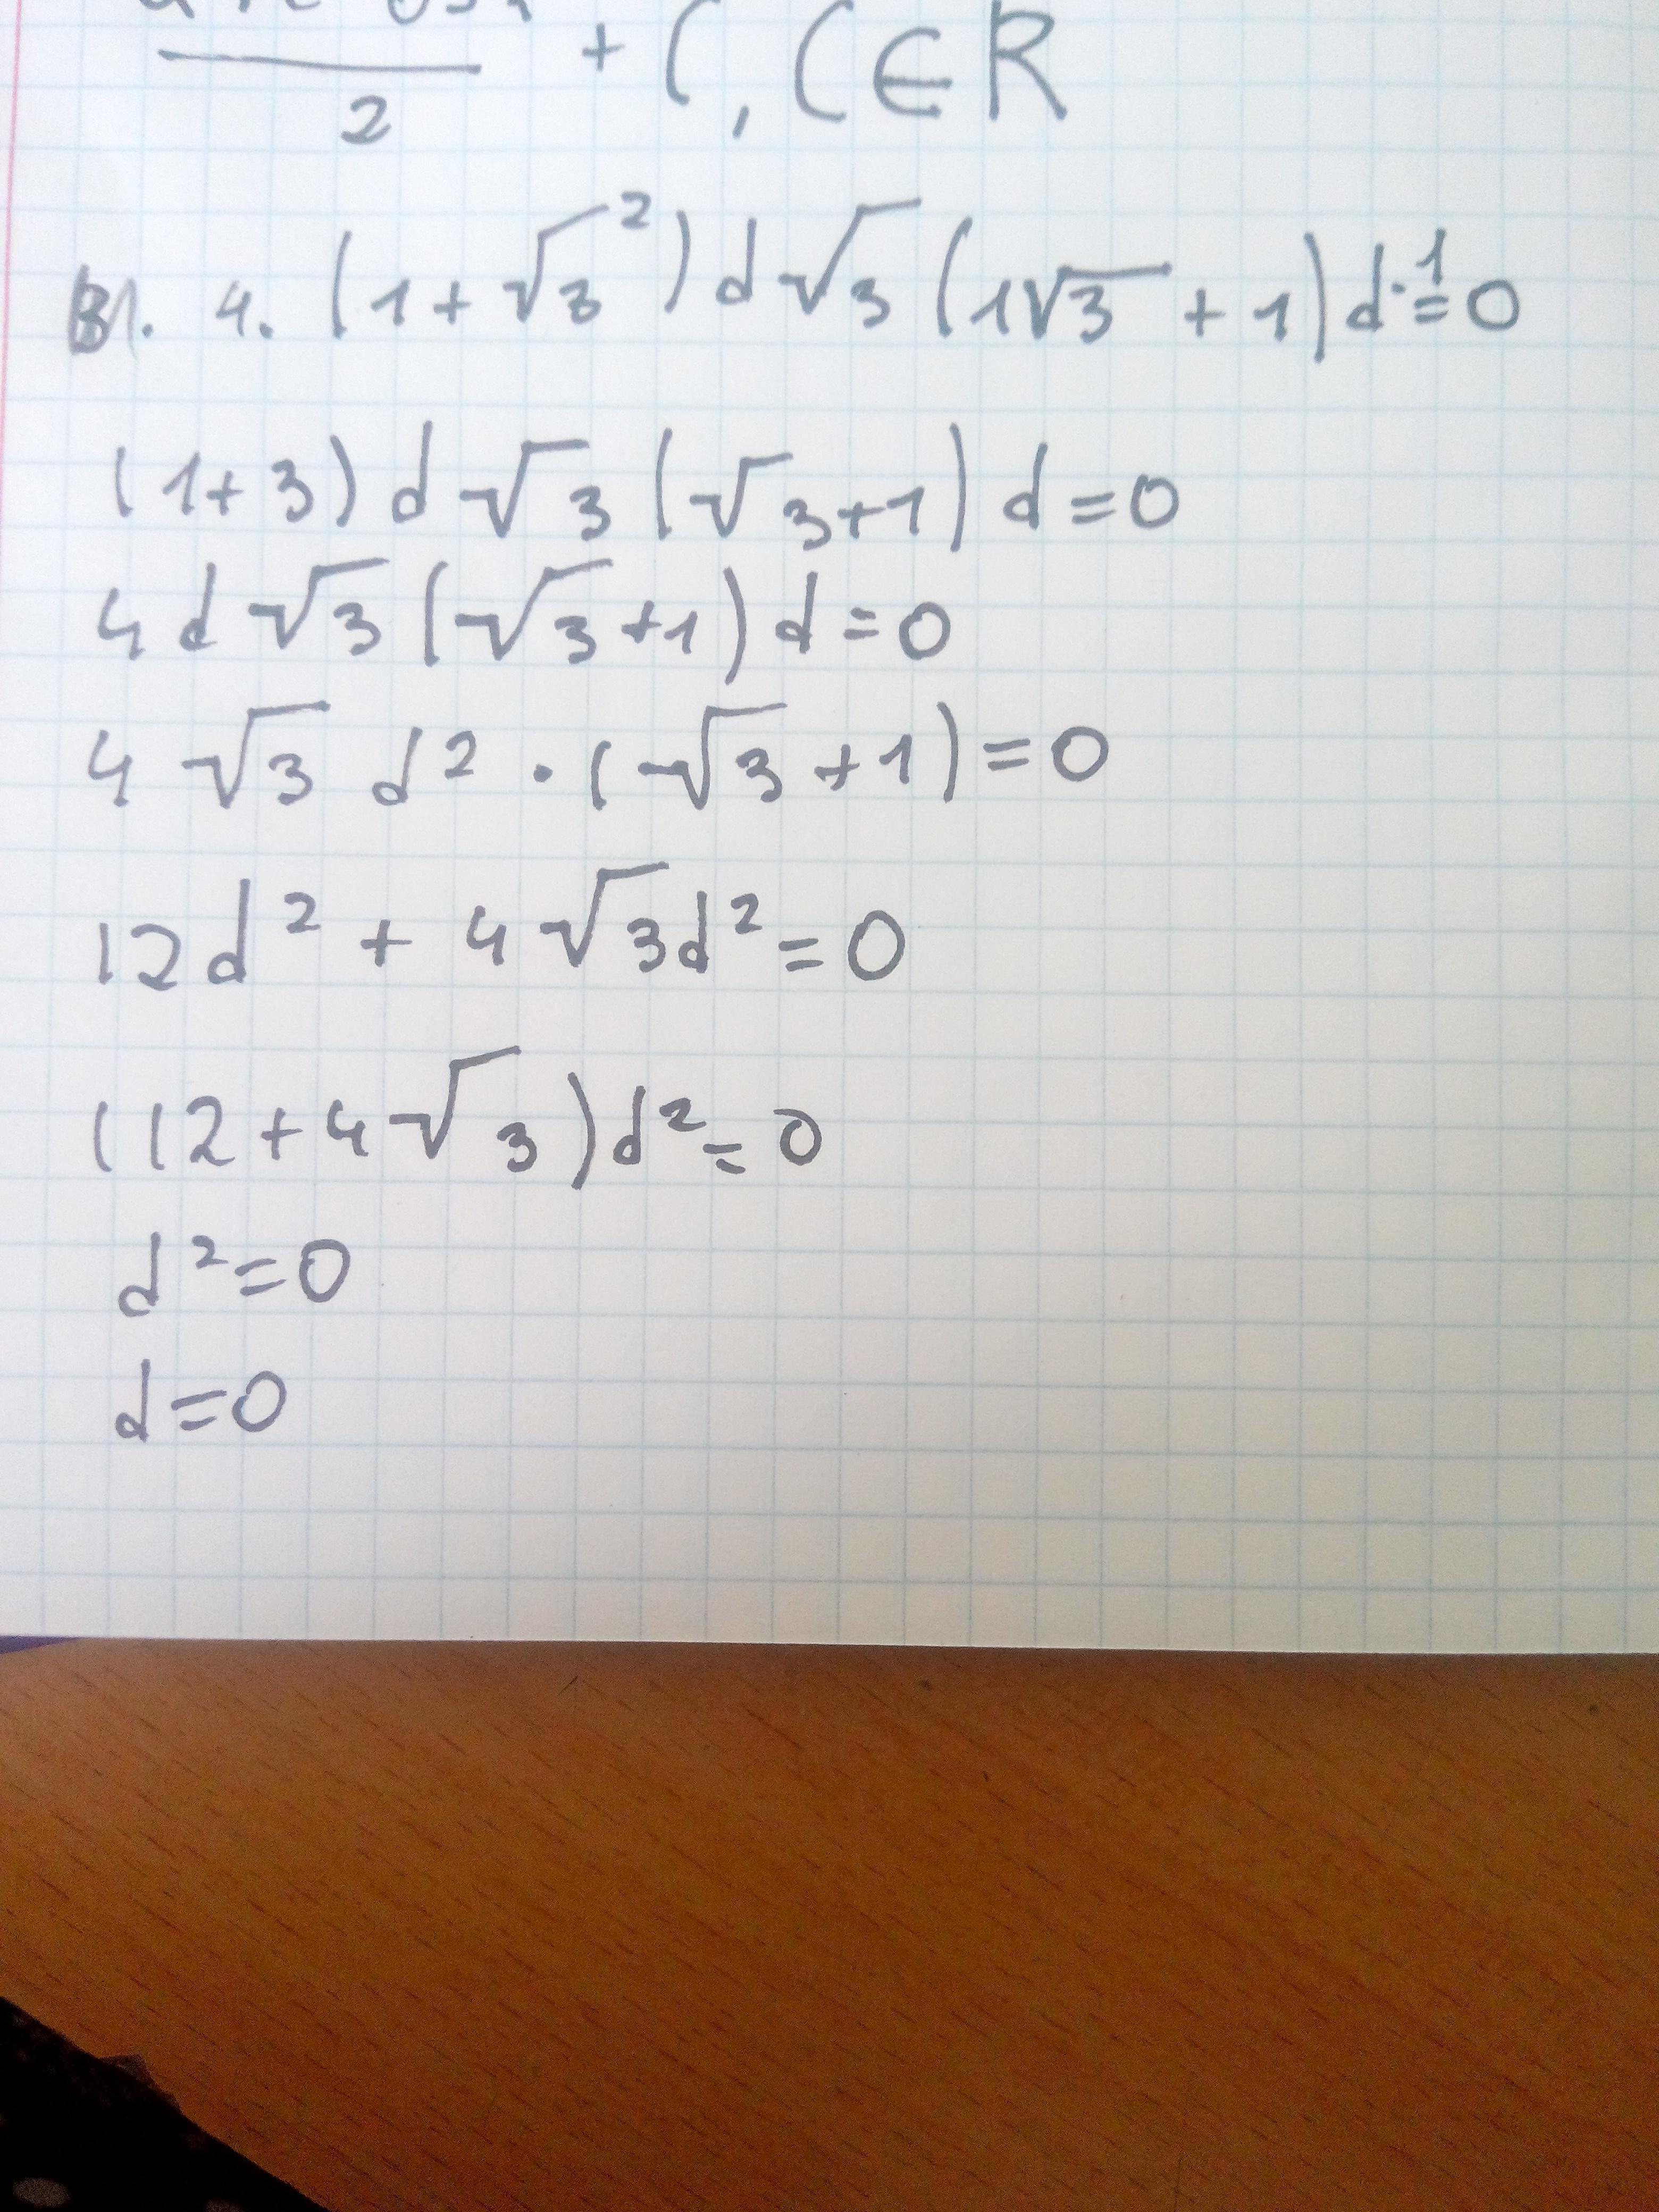 2
+ C, C ∈ R
B1. 4. (1+√3²)d√3(1√3+1)d·1=0
(1+3)d√3(√3+1)d=0
4d√3(√3+1)d=0
4√3 d²·(√3+1)=0
12d²+4√3d²=0
(12+4√3)d²=0
d²=0
d=0